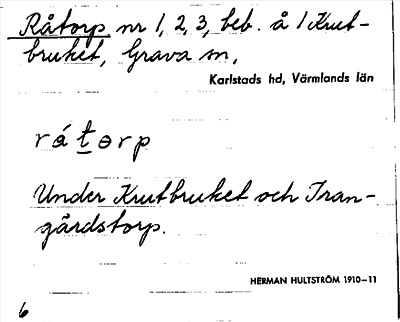 Råtorp nr 1, 2, 3, beb. å 1 Krut-
bruket, Grava sn,
Karlstads hd, Värmlands län
rátorp
Under Krutbruket och Tran-
gärdstorp.
HERMAN HULTSTRÖM 1910–11
6